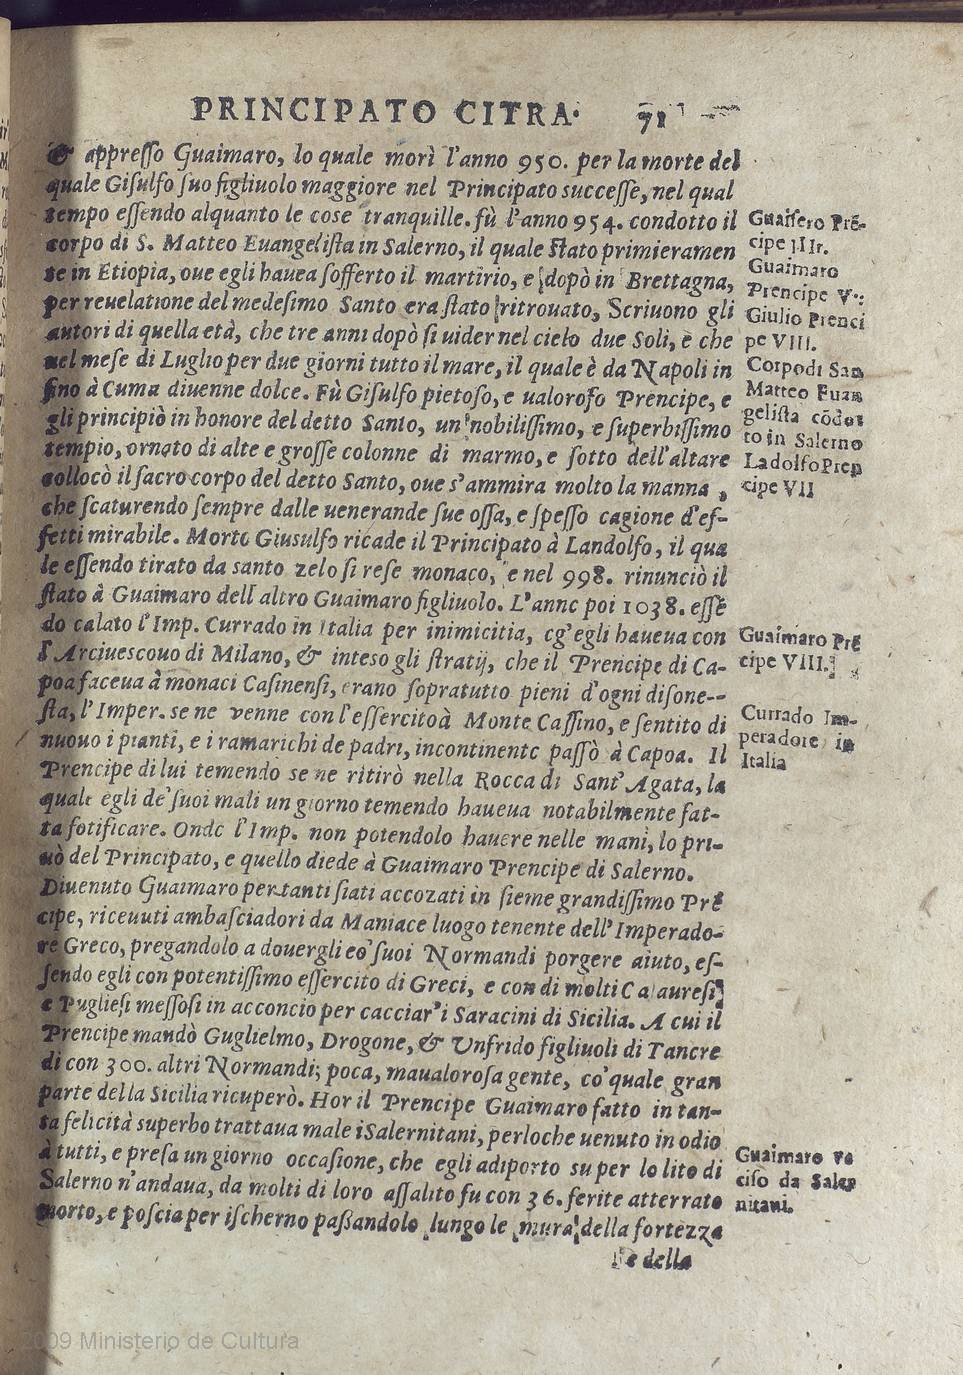 PRINCIPATO CITRA. 71
& appresso Guaimaro, lo quale morì l'anno 950. per la morte del
quale Gisulfo suo figliuolo maggiore nel Principato successe, nel qual
tempo essendo alquanto le cose tranquille. fù l'anno 954. condotto il
corpo di S. Matteo Euangelista in Salerno, il quale stato primieramen
te in Etiopia, oue egli hauea sofferto il martirio, e dopò in Brettagna,
per reuelatione del medesimo Santo era stato ritrouato, Scriuono gli
autori di quella età, che tre anni dopò si uider nel cielo due Soli, e che
nel mese di Luglio per due giorni tutto il mare, il quale è da Napoli in
fino à Cuma diuenne dolce. Fù Gisulfo pietoso, e ualoroso Prencipe, e
gli principiò in honore del detto Santo, un nobilissimo, e superbissimo
tempio, ornato di alte e grosse colonne di marmo, e sotto dell'altare
collocò il sacro corpo del detto Santo, oue s'ammira molto la manna,
che scaturendo sempre dalle uenerande sue ossa, e spesso cagione d'ef-
fetti mirabile. Morto Giusulfo ricade il Principato à Landolfo, il qua
le essendo tirato da santo zelo si rese monaco, e nel 998. rinunciò il
stato à Guaimaro dell altro Guaimaro figliuolo. L'anno poi 1038. essē
do calato l'Imp. Currado in Italia per inimicitia, cg'egli haueua con
l'Arciuescouo di Milano, & inteso gli stratij, che il Prencipe di Ca-
poa faceua à monaci Casinensi, erano sopratutto pieni d'ogni disone-
sta, l'Imper. se ne venne con l'essercito à Monte Cassino, e sentito di
nuouo i pianti, e i ramarichi de padri, incontinente passò à Capoa. Il
Prencipe di lui temendo se ne ritirò nella Rocca di Sant'Agata, la
quale egli de' suoi mali un giorno temendo haueua notabilmente fat-
ta fotificare. Onde l'Imp. non potendolo hauere nelle mani, lo pri-
uò del Principato, e quello diede à Guaimaro Prencipe di Salerno.
Diuenuto Guaimaro per tanti stati accozati in sieme grandissimo Prē
cipe, riceuuti ambasciadori da Maniace luogo tenente dell'Imperado-
re Greco, pregandolo a douergli co' suoi Normandi porgere aiuto, es-
sendo egli con potentissimo essercito di Greci, e con di molti Calauresi,
e Pugliesi messosi in acconcio per cacciar' i Saracini di Sicilia. A cui il
Prencipe mandò Guglielmo, Drogone, & Unfrido figliuoli di Tancre
di con 300. altri Normandi; poca, ma ualorosa gente, co' quale gran
parte della Sicilia ricuperò. Hor il Prencipe Guaimaro fatto in tan-
ta felicità superbo trattaua male i Salernitani, perloche uenuto in odio
à tutti, e presa un giorno occasione, che egli adiporto su per lo lito di
Salerno n'andaua, da molti di loro assalito fu con 36. ferite atterrato
morto, e poscia per ischerno passandolo lungo le mura della fortezza
e della
Guaifero Prē-
cipe IIII.
Guaimaro
Prencipe V.
Giulio Prenci
pe VIII.
Corpo di San
Matteo Euan
gelista cōdot
to in Salerno
Ladolfo Pren
cipe VII
Guaimaro Prē
cipe VIII.
Currado Im-
peradore in
Italia
Guaimaro vc
ciso da Saler
nitani.
2009 Ministerio de Cultura